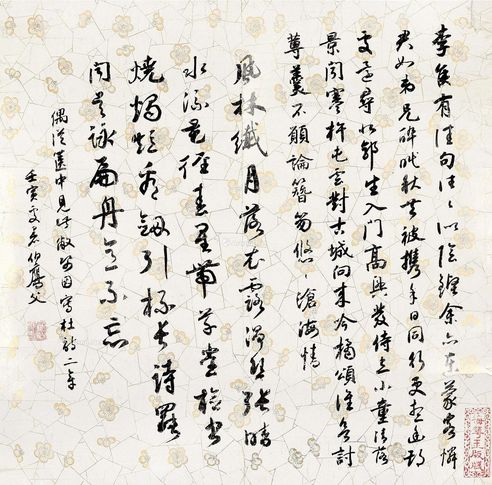 李侯有佳句往〻似陰鏗余亦東蒙客憐
君如弟兄醉眠秋共被攜手日同行更想幽期
處還尋北郭生入門高興發侍立小童清落
景聞寒杵屯雲對古城向來吟橘頌誰欲討
蓴羹不願論簪笏悠〻滄海情
風林纖月落衣露淨琴張暗
水流花徑春星帶草堂檢書
燒燭短看劍引杯長詩罷
聞吳詠扁舟意不忘
偶從篋中見此敝箋因寫杜詩二章
壬寅夏伯鷹父